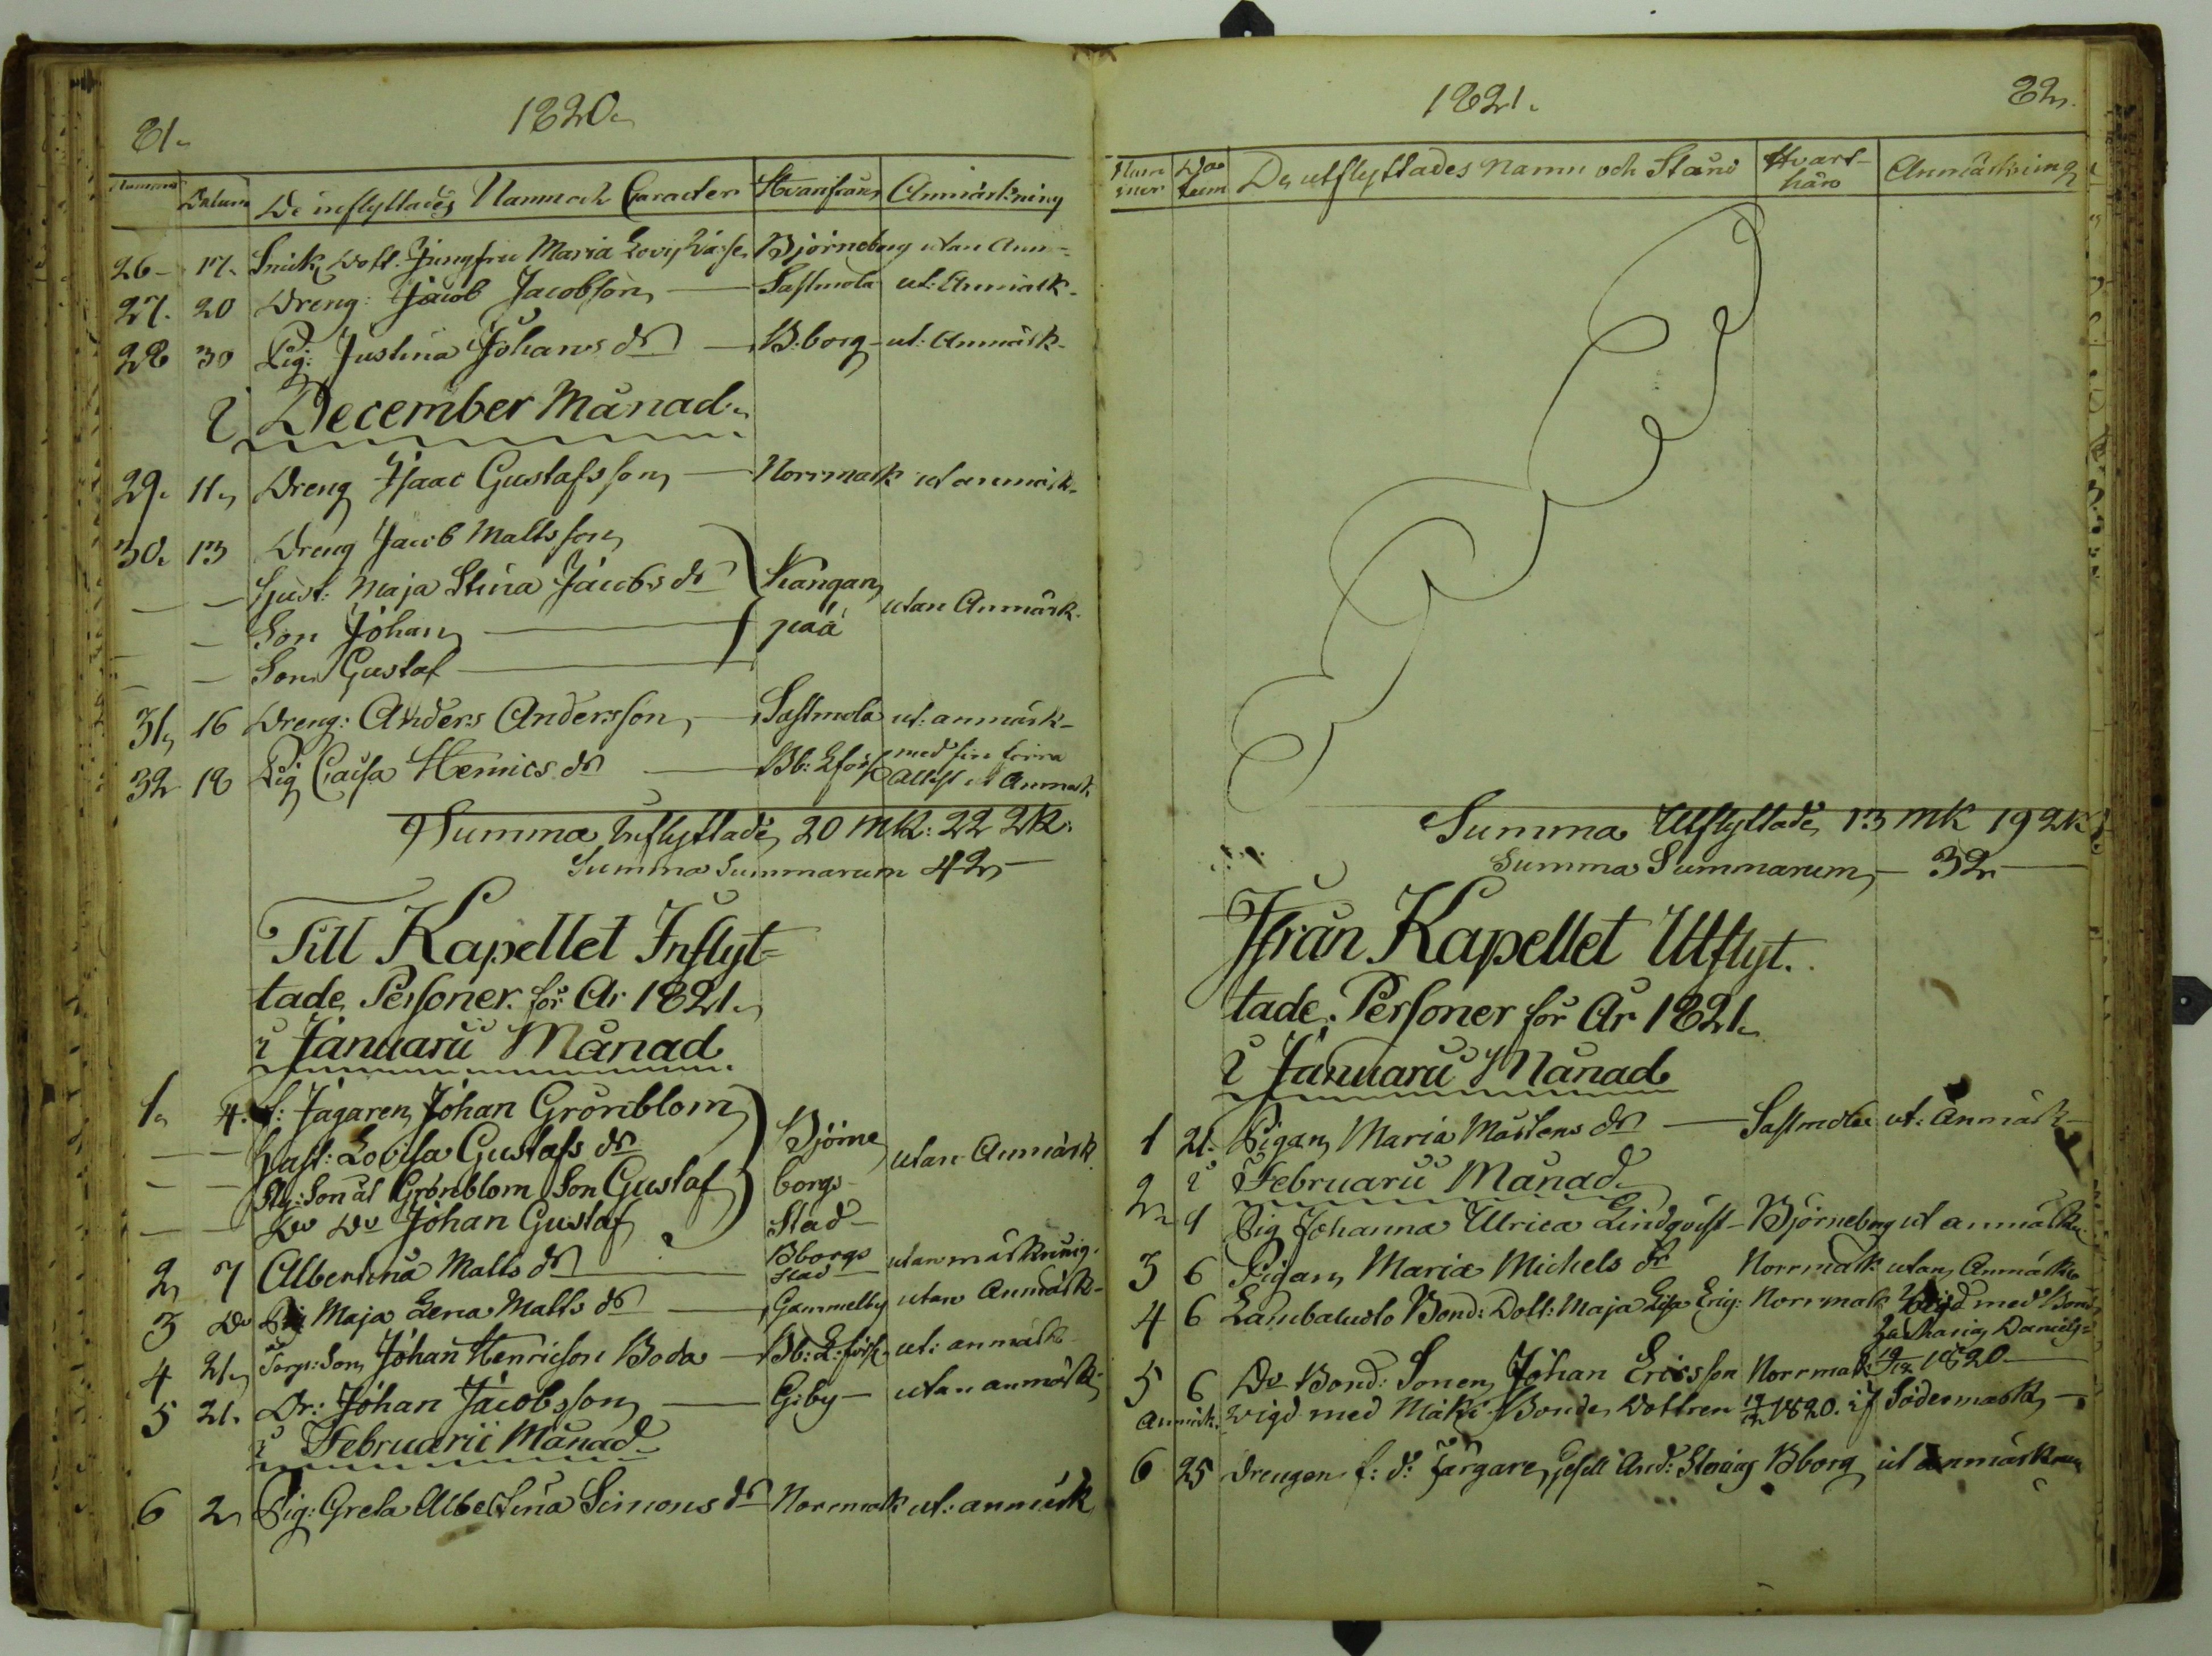 81.
1820.
Numme Datum De inflyttades Namn och Caracter Hvarifrån Anmärkning
26 17. Snick. Dott. Jungfru Maria Lovis Björneborg utan Anm=
27. 20 Dreng: Jacob Jacobsson Sastmola ut: Anmärk.
28 30 Pig: Justina Johans dr B:borg ut: Anmärk.
i December Månad.
29. 11. Dreng Isaac Gustafsson Norrmark ut anmärk.
30. 13 Dreng Jacob Mattsson
— — Hust: Maja Stina Jacobs dr Kangan
— — Son Johan pää utan Anmärk.
— — Son Gustaf
31. 16 Dreng: Anders Andersson, Sastmola ut: anmärk
32 18 Pig Caisa Henrics dr Bb: Lförs med sin förra
Attest ut Anmark
Summa Inflyttade, 20 MK: 22 QK:
Summa Summarum 42
Till Kapellet Inflyt=
tade Personer för År 1821.
i Januarii Månad
1. 4. f: Jägaren Johan Grönblom
— — Hust: Lovisa Gustafs dr Björne
— — Sty: Son ål Grönblom Son Gustaf borgs utan Anmärk.
— — Do Do Johan Gustaf Stad
2 7 Albertina Matts dr Bborgs Stad utanmärkning.
3 Do Maja Lena Matts dr Gammelby utan Anmärk
4 21. Torp: Son Johan Henricson Boda Bb: L: förs. ut: anmärk
5 21. Dr: Johan Jacobsson Giby utan anmärk
i Februarii Månad
6 2 Pig: Greta Albertina Simons dr Norrmark ut: anmärk
1821.
82.
Num mer Da tum De utflyttades Namn och Stånd Hvart=häro Anmärkning
Summa Utflyttade, 13 MK 19 QK
Summa Summarum, 32
Ifrån Kapellet Utflyt.
tade. Personer för År 1821.
i Januarii Månad
1 21. Pigan Maria Mårtens dr Sastmola ut: Anmärk
i Februarii Månad
2 1 Pig Johanna Ulrica Lindqvist Björneborg ut anmärk
3 6 Pigan Maria Michels dr Norrmark utan Anmärk
4 6 Bond: Dott: Maja Lisa Erig: Norrmark Vigd med Bond
Zacharias Daniels=
5 6 Do Bond: Sonen Johan Ericsson Norrmark 19/12 1820
Anmärk. Wigd med Mäki Bonde Dottren 19/12 1820. if Södermark
6 25 Drengen f: d: Färgare Gesell And: Bborg ut Anmärkn